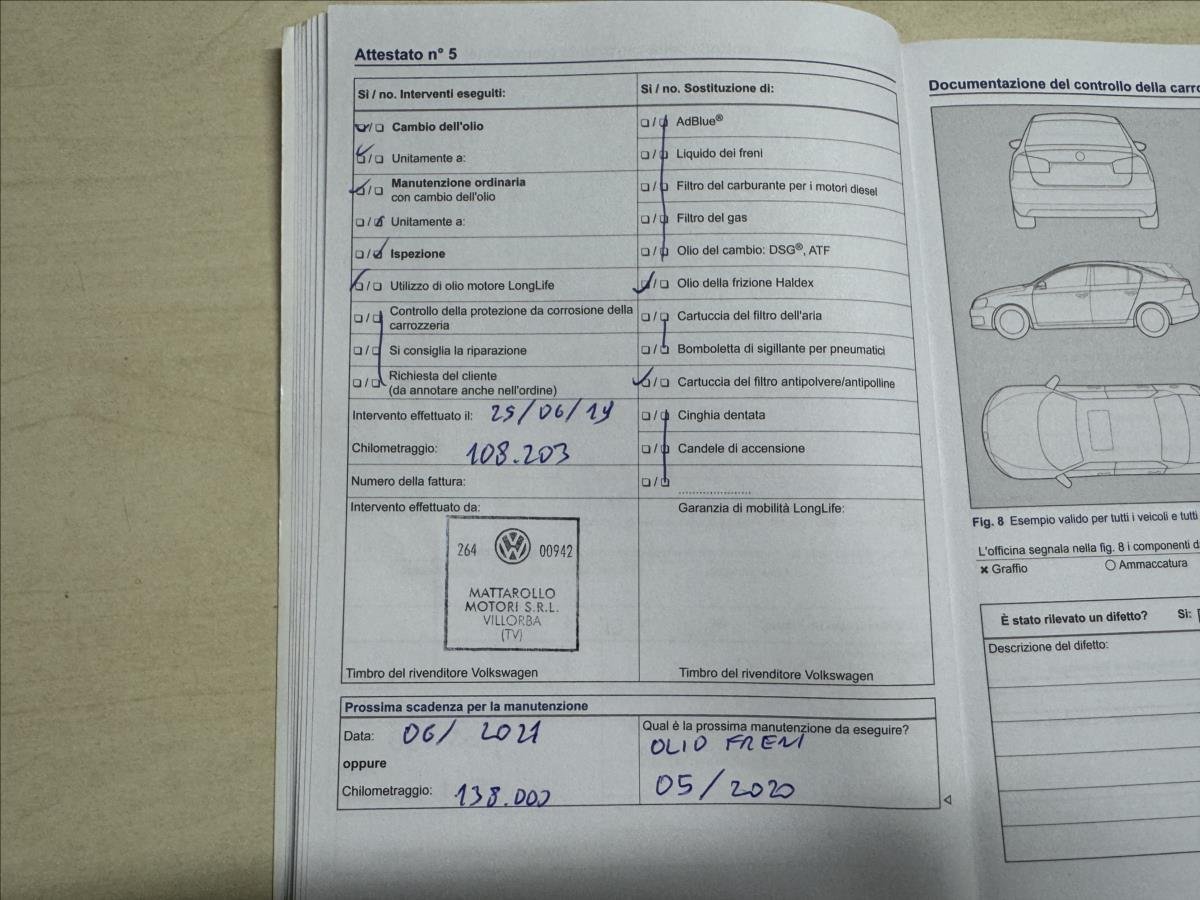 Attestato n° 5
Si / no. Interventi eseguiti:
Cambio dell'olio
Unitamente a:
Manutenzione ordinaria
con cambio dell'olio
Unitamente a:
Ispezione
Utilizzo di olio motore LongLife
Controllo della protezione da corrosione della
carrozzeria
Si consiglia la riparazione
Richiesta del cliente
(da annotare anche nell'ordine)
Intervento effettuato il: 25/06/19
Chilometraggio: 108.203
Numero della fattura:
Intervento effettuato da:
264 00942
MATTAROLLO
MOTORI S.R.L.
VILLORBA
(TV)
Timbro del rivenditore Volkswagen
Si / no. Sostituzione di:
AdBlue®
Liquido dei freni
Filtro del carburante per i motori diesel
Filtro del gas
Olio del cambio: DSG®, ATF
Olio della frizione Haldex
Cartuccia del filtro dell'aria
Bomboletta di sigillante per pneumatici
Cartuccia del filtro antipolvere/antipolline
Cinghia dentata
Candele di accensione
Garanzia di mobilità LongLife:
Timbro del rivenditore Volkswagen
Prossima scadenza per la manutenzione
Data: 06/2021
oppure
Chilometraggio: 138.000
Qual è la prossima manutenzione da eseguire?
OLIO FRENI
05/2020
Documentazione del controllo della carro
Fig. 8 Esempio valido per tutti i veicoli e tutti
L'officina segnala nella fig. 8 i componenti d
Graffio
Ammaccatura
È stato rilevato un difetto? Si:
Descrizione del difetto: